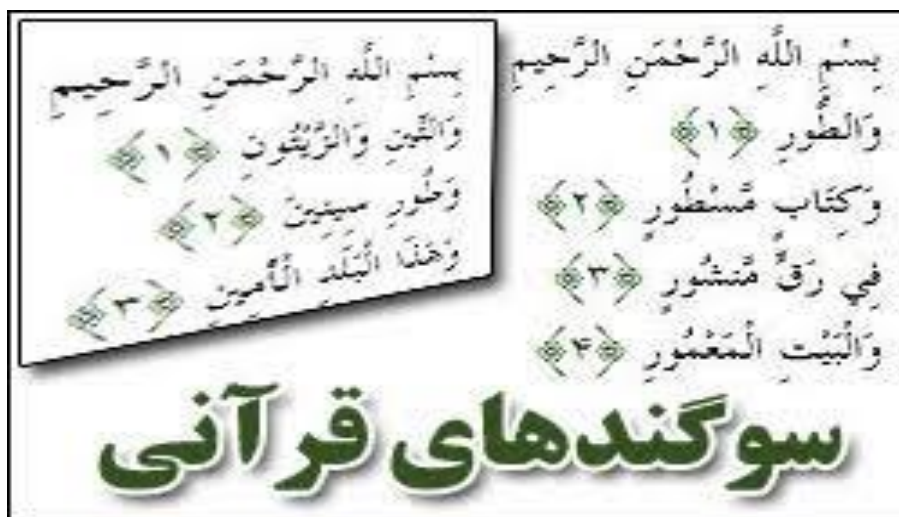 بِسْمِ اللَّهِ الرَّحْمَنِ الرَّحِيمِ
وَالطُّورِ ﴿۱﴾
وَكِتَابٍ مَّسْطُورٍ ﴿۲﴾
فِي رَقٍّ مَّنشُورٍ ﴿۳﴾
وَالْبَيْتِ الْمَعْمُورِ ﴿۴﴾
بِسْمِ اللَّهِ الرَّحْمَنِ الرَّحِيمِ
وَالتِّينِ وَالزَّيْتُونِ ﴿۱﴾
وَطُورِ سِينِينَ ﴿۲﴾
وَهَذَا الْبَلَدِ الْأَمِينِ ﴿۳﴾
سوگندهای قرآنی